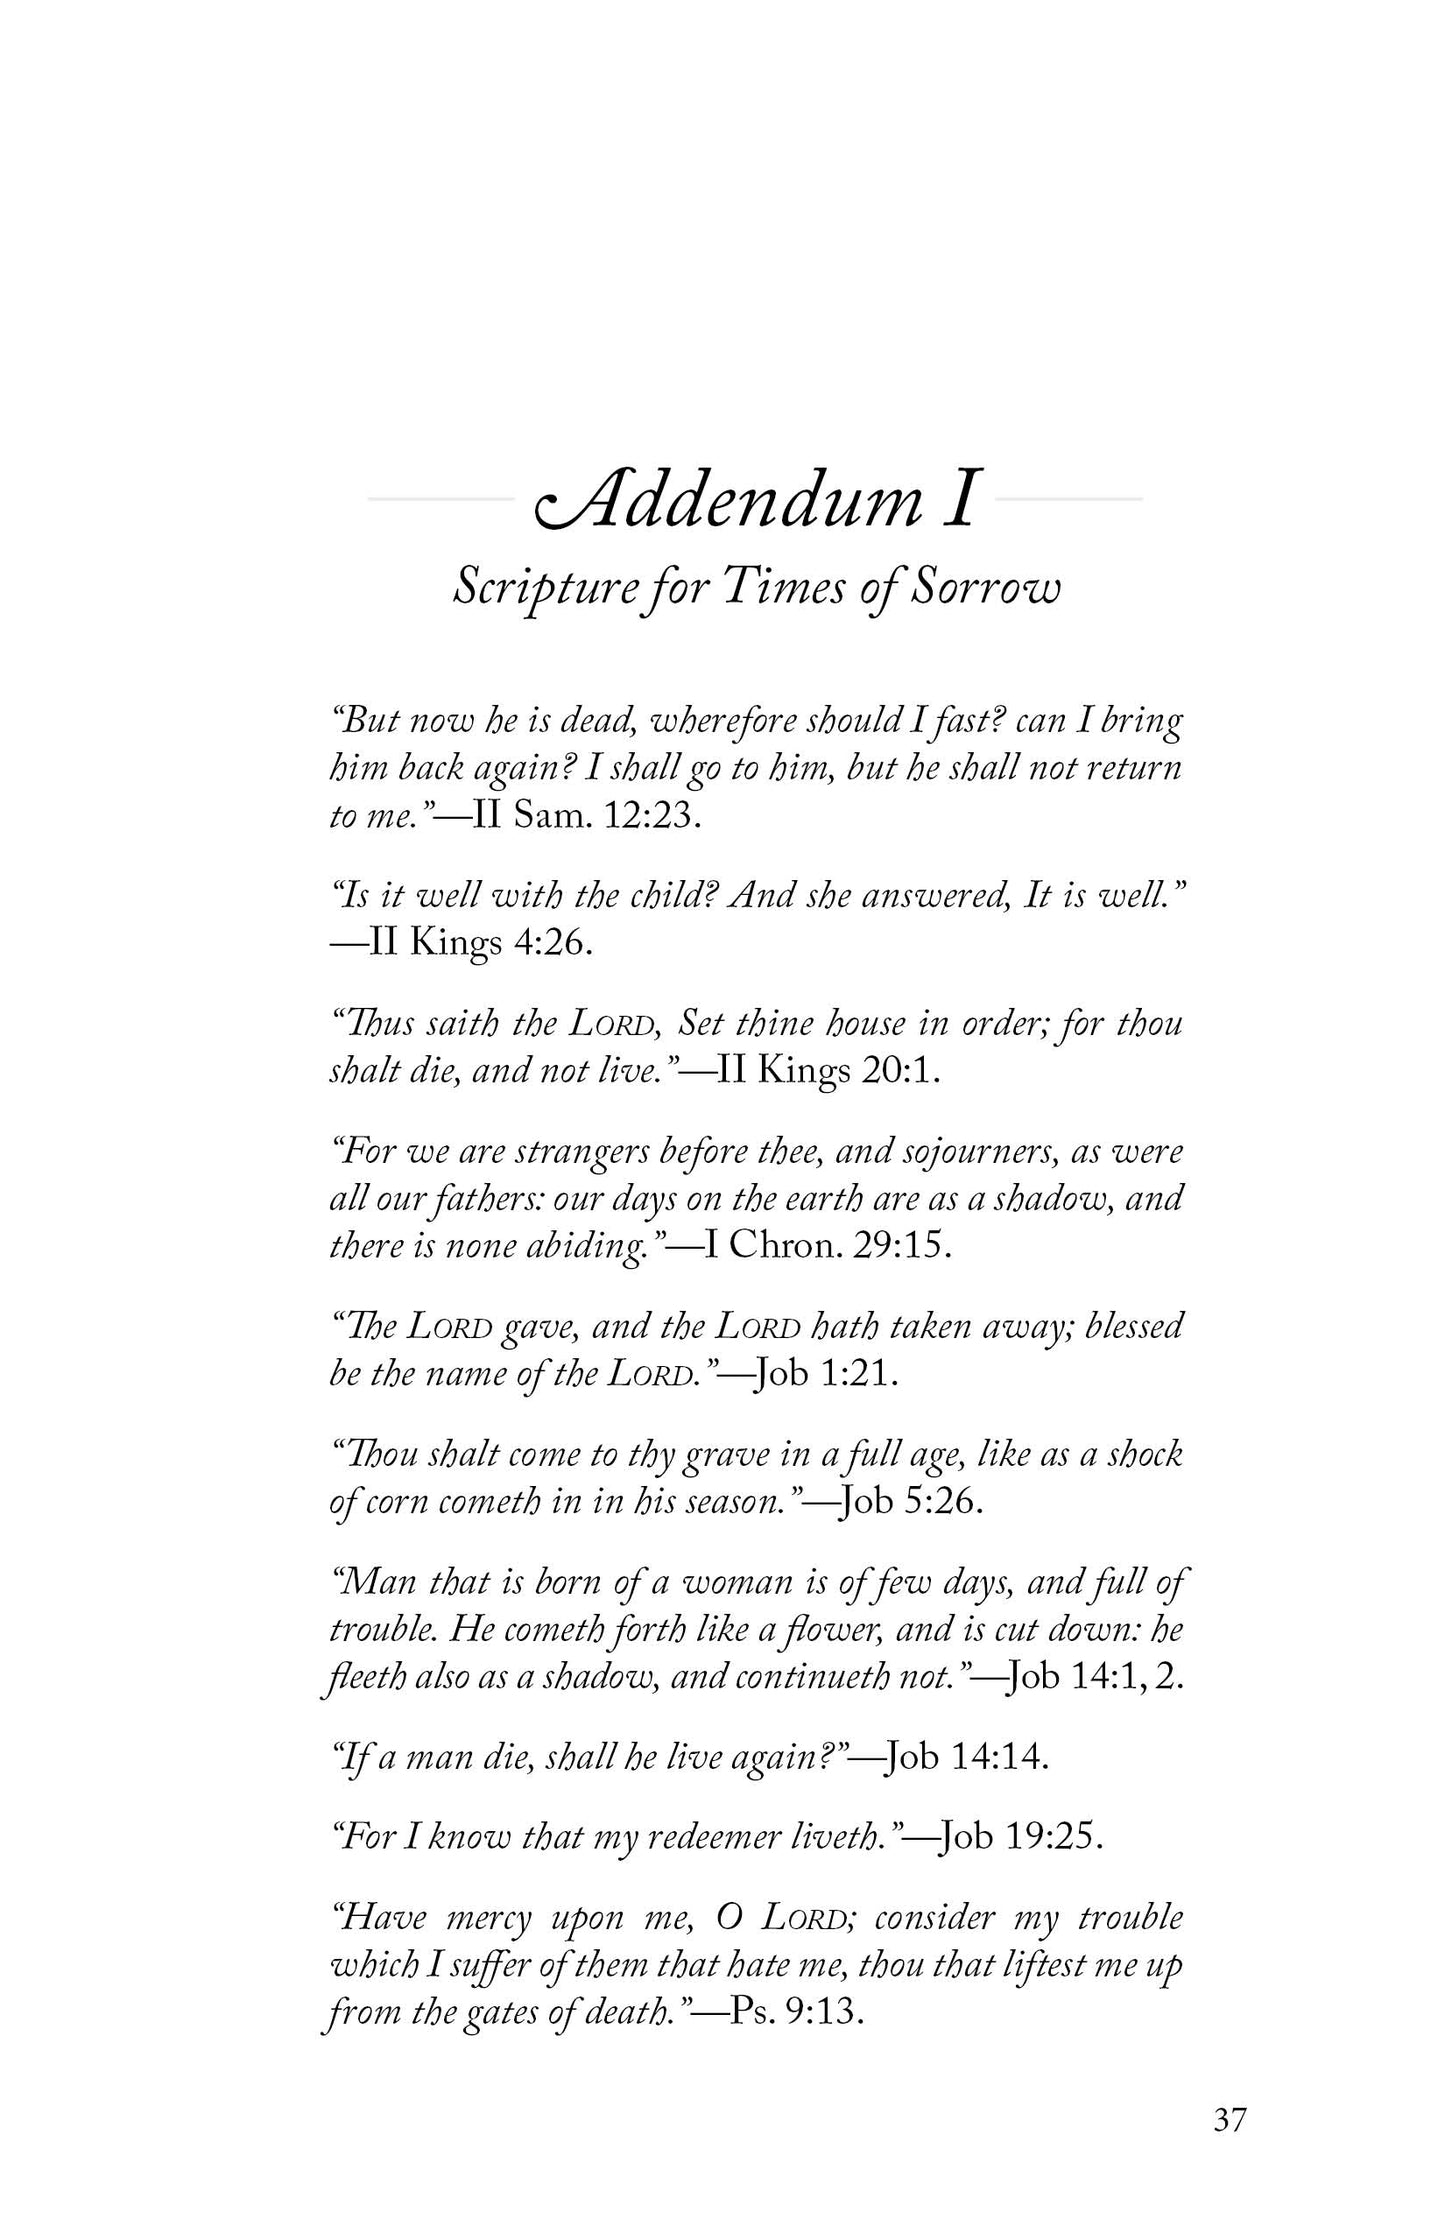 Addendum I
Scripture for Times of Sorrow
“But now he is dead, wherefore should I fast? can I bring
him back again? I shall go to him, but he shall not return
to me.”—II Sam. 12:23.
“Is it well with the child? And she answered, It is well.”
—II Kings 4:26.
“Thus saith the LORD, Set thine house in order; for thou
shalt die, and not live.”—II Kings 20:1.
“For we are strangers before thee, and sojourners, as were
all our fathers: our days on the earth are as a shadow, and
there is none abiding.”—I Chron. 29:15.
“The LORD gave, and the LORD hath taken away; blessed
be the name of the LORD.”—Job 1:21.
“Thou shalt come to thy grave in a full age, like as a shock
of corn cometh in in his season.”—Job 5:26.
“Man that is born of a woman is of few days, and full of
trouble. He cometh forth like a flower, and is cut down: he
fleeth also as a shadow, and continueth not.”—Job 14:1, 2.
“If a man die, shall he live again?”—Job 14:14.
“For I know that my redeemer liveth.”—Job 19:25.
“Have mercy upon me, O LORD; consider my trouble
which I suffer of them that hate me, thou that liftest me up
from the gates of death.”—Ps. 9:13.
37